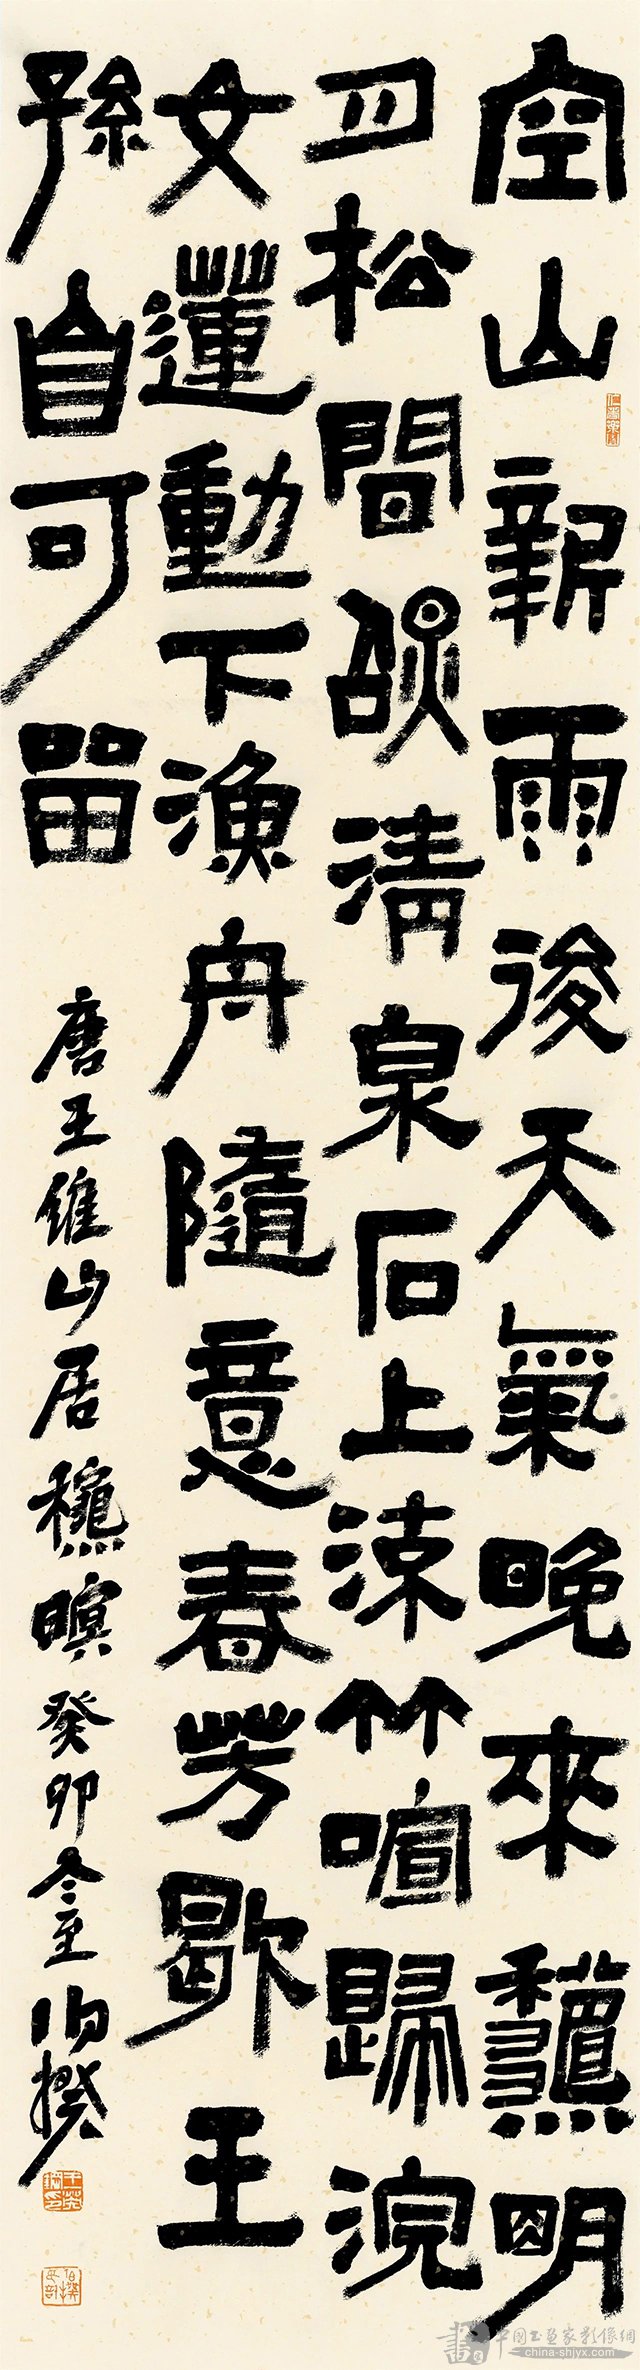 空山新雨後天氣晚來龝明
月松間照清泉石上涼竹喧歸浣
女蓮動下漁舟隨意春芳歇王
孫自可留
唐王維山居龝暝癸卯冬至伯揆
中國书画家影像網
china-shjyx.com